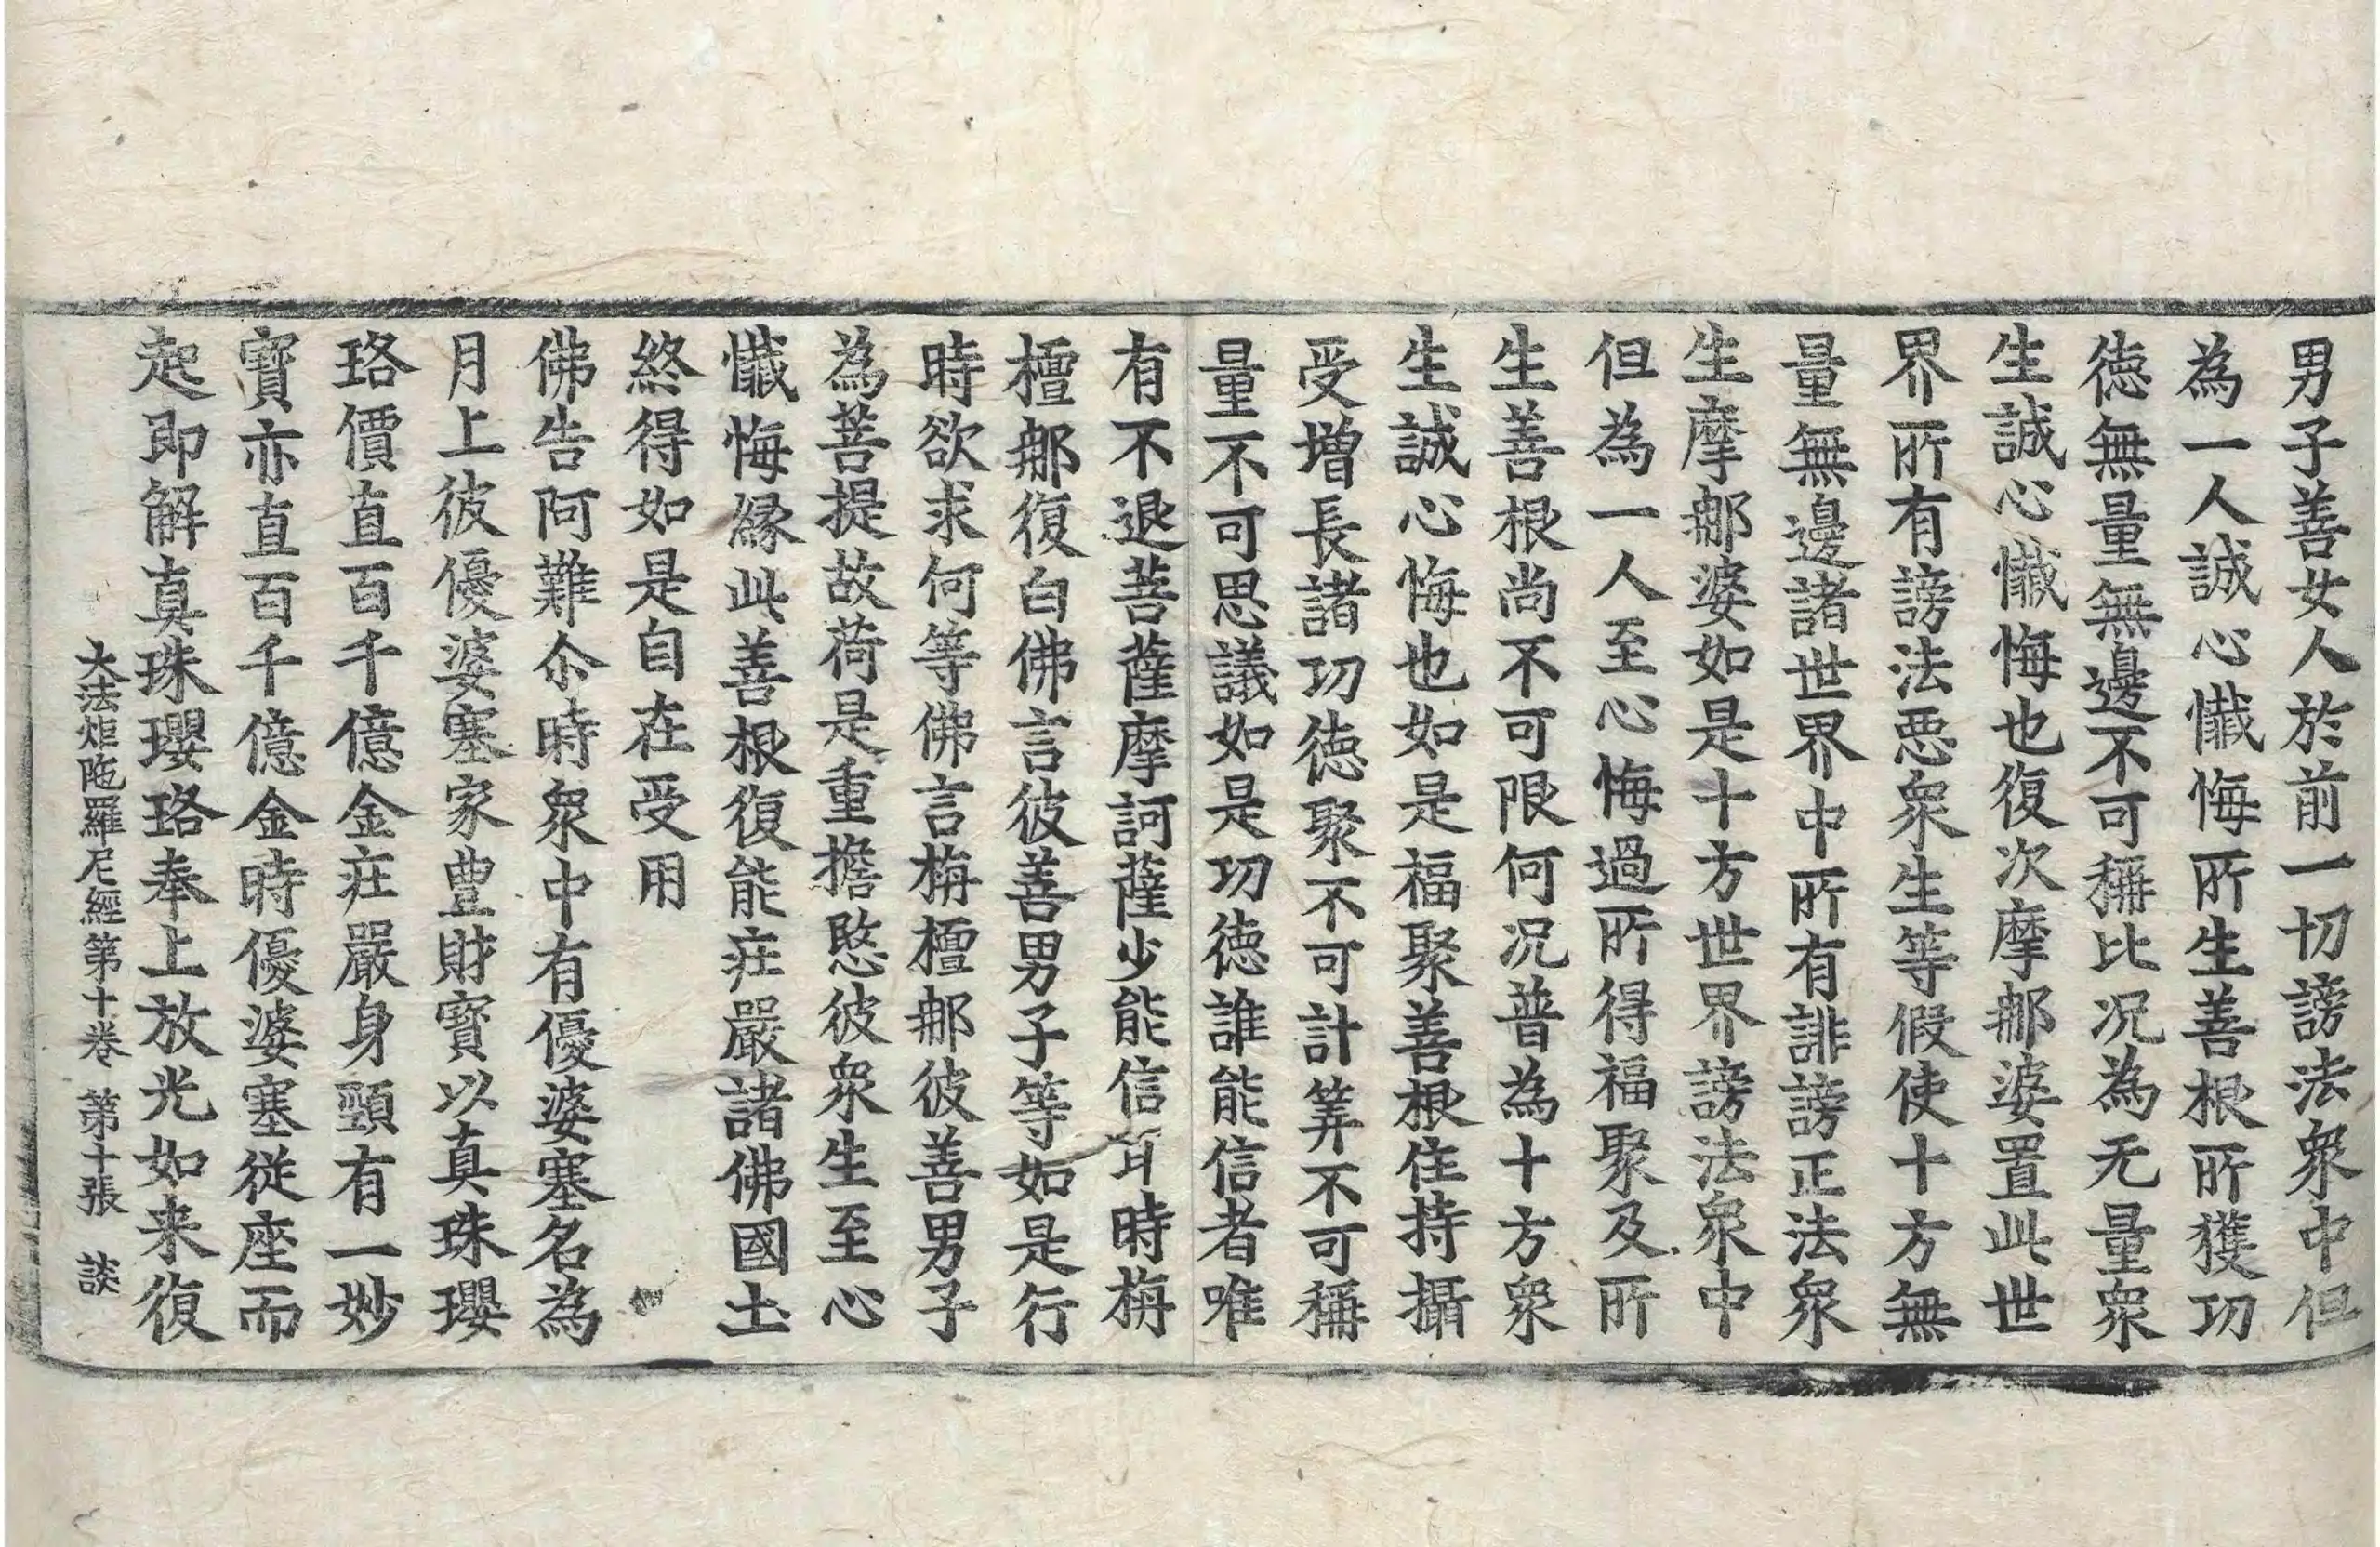 男子善女人於前一切謗法衆中但
為一人誠心懺悔所生善根所獲功
徳無量無邊不可稱比况為无量衆
生誠心懺悔也復次摩䣯婆置此世
界所有謗法惡衆生等假使十方無
量無邊諸世界中所有誹謗正法衆
生摩䣯婆如是十方世界謗法衆中
但為一人至心悔過所得福聚及所
生善根尚不可限何况普為十方衆
生誠心悔也如是福聚善根住持攝
受增長諸功徳聚不可計筭不可稱
量不可思議如是功徳誰能信者唯
有不退菩薩摩訶薩少能信耳時栴
檀䣯復白佛言彼善男子等如是行
時欲求何等佛言栴檀䣯彼善男子
為菩提故荷是重擔愍彼衆生至心
懺悔緣此善根復能莊嚴諸佛國土
終得如是自在受用
佛告阿難尒時衆中有優婆塞名為
月上彼優婆塞家豊財寶以真珠瓔
珞價直百千億金莊嚴身頸有一妙
寶亦直百千億金時優婆塞從座而
起即解真珠瓔珞奉上放光如来復
大法炬陁羅尼經第十卷 第十張 談